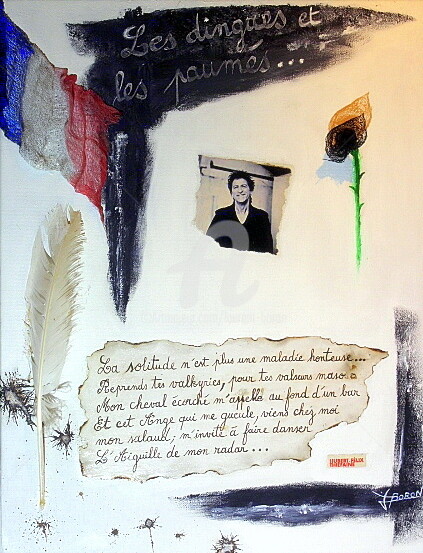 Les dingues et
les paumés...
La solitude n'est plus une maladie honteuse...
Reprends tes valkyries, pour tes valseurs maso
Mon cheval écorché m'appelle au fond d'un bar
Et cet Ange qui me gueule, viens chez moi
mon salaud, m'invite à faire danser
L'Aiguille de mon radar...
HUBERT-FÉLIX
THIÉFAINE
BORON